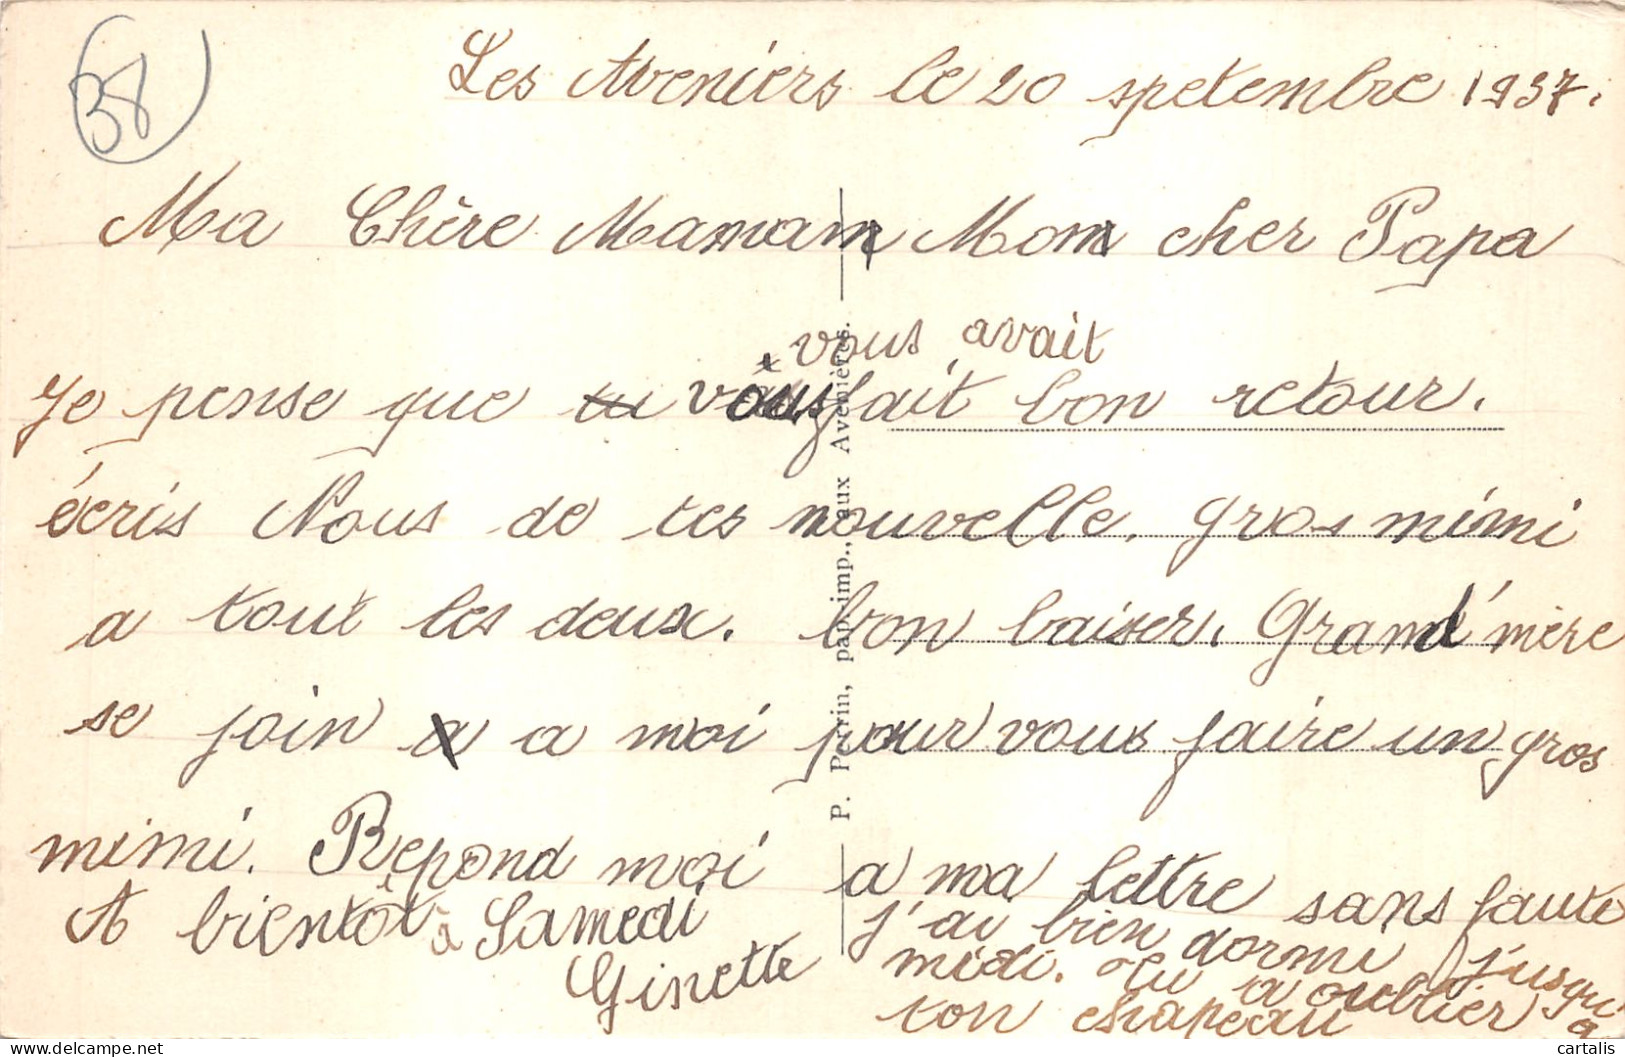 38
Les Aveniers le 20 spetembre 1937.
Ma Chère Maman Mon cher Papa
vous avait
Je pense que tu vous fait bon retour.
écris Nous de tes nouvelle. gros mimi
a tout les deux. bon baiser. Grand'mère
se join a a moi pour vous faire un gros
mimi. Repond moi a ma lettre sans faute
A bientôt à Samedi
Ginette
j'ai bien dormi j'usqu'i a
midi. Tu a oublier
ton chapeau
P. Perrin, pap.-imp., aux Avenières.
cartalis